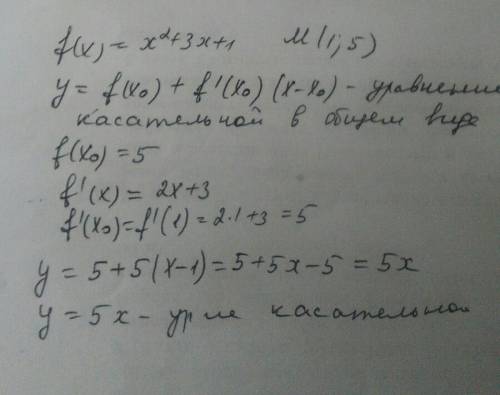 f(x) = x²+3x+1 M(1; 5)
y = f(x₀) + f'(x₀) (x-x₀) - уравнение
касательной в общем виде
f(x₀) = 5
f'(x) = 2x+3
f'(x₀)=f'(1) = 2·1+3 = 5
y = 5+5(x-1)=5+5x-5 = 5x
y = 5x - ур-ие касательной